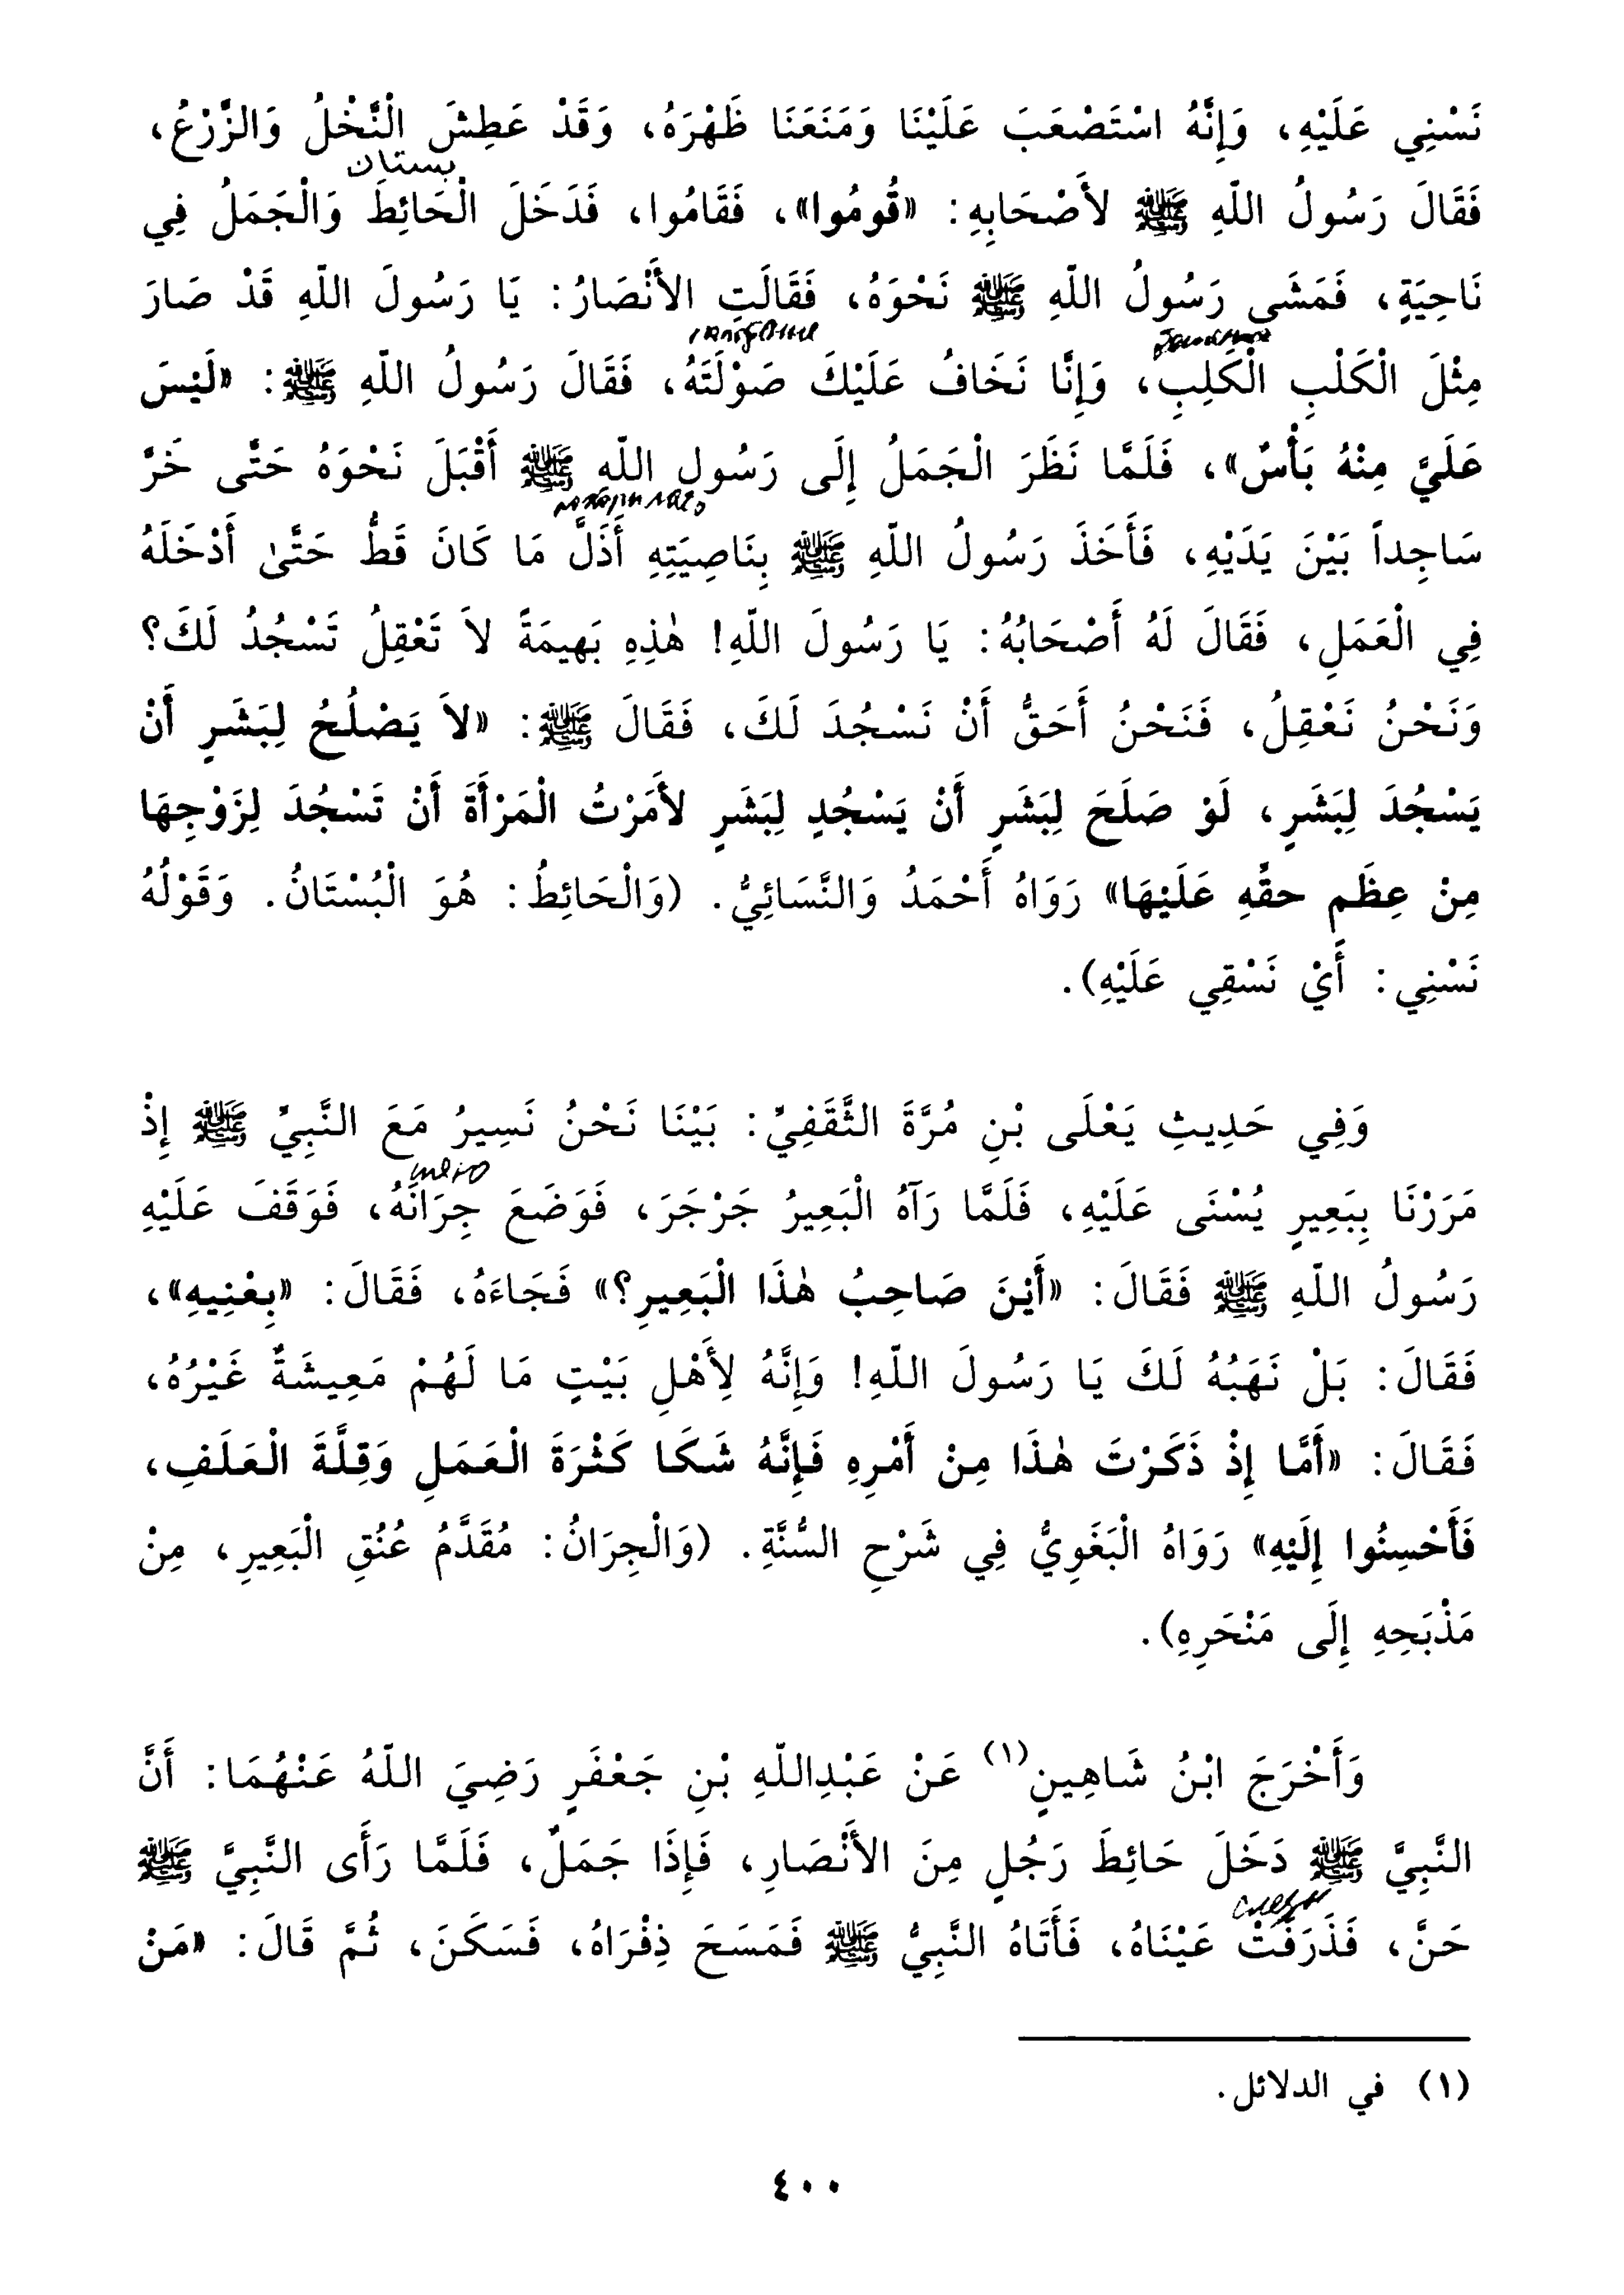 نَسْنِي عَلَيْهِ، وَإِنَّهُ اسْتَصْعَبَ عَلَيْنَا وَمَنَعَنَا ظَهْرَهُ، وَقَدْ عَطِشَ الْنَّخْلُ وَالزَّرْعُ،
بستان
فَقَالَ رَسُولُ اللّهِ ﷺ لأَصْحَابِهِ: «قُومُوا»، فَقَامُوا، فَدَخَلَ الْحَائِطَ وَالْجَمَلُ فِي
نَاحِيَةٍ، فَمَشَى رَسُولُ اللّهِ ﷺ نَحْوَهُ، فَقَالَتِ الأَنْصَارُ: يَا رَسُولَ اللّهِ قَدْ صَارَ
مِثْلَ الْكَلْبِ الْكَلِبِ، وَإِنَّا نَخَافُ عَلَيْكَ صَوْلَتَهُ، فَقَالَ رَسُولُ اللّهِ ﷺ: «لَيْسَ
عَلَيَّ مِنْهُ بَأْسٌ»، فَلَمَّا نَظَرَ الْجَمَلُ إِلَى رَسُولِ اللّهِ ﷺ أَقْبَلَ نَحْوَهُ حَتَّى خَرَّ
سَاجِداً بَيْنَ يَدَيْهِ، فَأَخَذَ رَسُولُ اللّهِ ﷺ بِنَاصِيَتِهِ أَذَلَّ مَا كَانَ قَطُّ حَتَّىٰ أَدْخَلَهُ
فِي الْعَمَلِ، فَقَالَ لَهُ أَصْحَابُهُ: يَا رَسُولَ اللّهِ! هٰذِهِ بَهِيمَةً لاَ تَعْقِلُ تَسْجُدُ لَكَ؟
وَنَحْنُ نَعْقِلُ، فَنَحْنُ أَحَقُّ أَنْ نَسْجُدَ لَكَ، فَقَالَ ﷺ: «لاَ يَصْلُحُ لِبَشَرٍ أَنْ
يَسْجُدَ لِبَشَرٍ، لَوْ صَلَحَ لِبَشَرٍ أَنْ يَسْجُدٍ لِبَشَرٍ لأَمَرْتُ الْمَرْأَةَ أَنْ تَسْجُدَ لِزَوْجِهَا
مِنْ عِظَمِ حقِّهِ عَلَيْهَا» رَوَاهُ أَحْمَدُ وَالنَّسَائِيُّ. (وَالْحَائِطُ: هُوَ الْبُسْتَانُ. وَقَوْلُهُ
نَسْنِي: أَيْ نَسْقِي عَلَيْهِ).
وَفِي حَدِيثِ يَعْلَى بْنِ مُرَّةَ الثَّقَفِيِّ: بَيْنَا نَحْنُ نَسِيرُ مَعَ النَّبِيِّ ﷺ إِذْ
مَرَرْنَا بِبَعِيرٍ يُسْنَى عَلَيْهِ، فَلَمَّا رَآهُ الْبَعِيرُ جَرْجَرَ، فَوَضَعَ جِرَانَهُ، فَوَقَفَ عَلَيْهِ
رَسُولُ اللّهِ ﷺ فَقَالَ: «أَيْنَ صَاحِبُ هٰذَا الْبَعِيرِ؟» فَجَاءَهُ، فَقَالَ: «بِعْنِيهِ»،
فَقَالَ: بَلْ نَهَبُهُ لَكَ يَا رَسُولَ اللّهِ! وَإِنَّهُ لِأَهْلِ بَيْتٍ مَا لَهُمْ مَعِيشَةٌ غَيْرُهُ،
فَقَالَ: «أَمَّا إِذْ ذَكَرْتَ هٰذَا مِنْ أَمْرِهِ فَإِنَّهُ شَكَا كَثْرَةَ الْعَمَلِ وَقِلَّةَ الْعَلَفِ،
فَأَحْسِنُوا إِلَيْهِ» رَوَاهُ الْبَغَوِيُّ فِي شَرْحِ السُّنَّةِ. (وَالْجِرَانُ: مُقَدَّمُ عُنُقِ الْبَعِيرِ، مِنْ
مَذْبَحِهِ إِلَى مَنْحَرِهِ).
وَأَخْرَجَ ابْنُ شَاهِينٍ(١) عَنْ عَبْدِاللّهِ بْنِ جَعْفَرٍ رَضِيَ اللّهُ عَنْهُمَا: أَنَّ
النَّبِيَّ ﷺ دَخَلَ حَائِطَ رَجُلٍ مِنَ الأَنْصَارِ، فَإِذَا جَمَلٌ، فَلَمَّا رَأَى النَّبِيَّ ﷺ
حَنَّ، فَذَرَفَتْ عَيْنَاهُ، فَأَتَاهُ النَّبِيُّ ﷺ فَمَسَحَ ذِفْرَاهُ، فَسَكَنَ، ثُمَّ قَالَ: «مَنْ
(١) في الدلائل.
٤٠٠